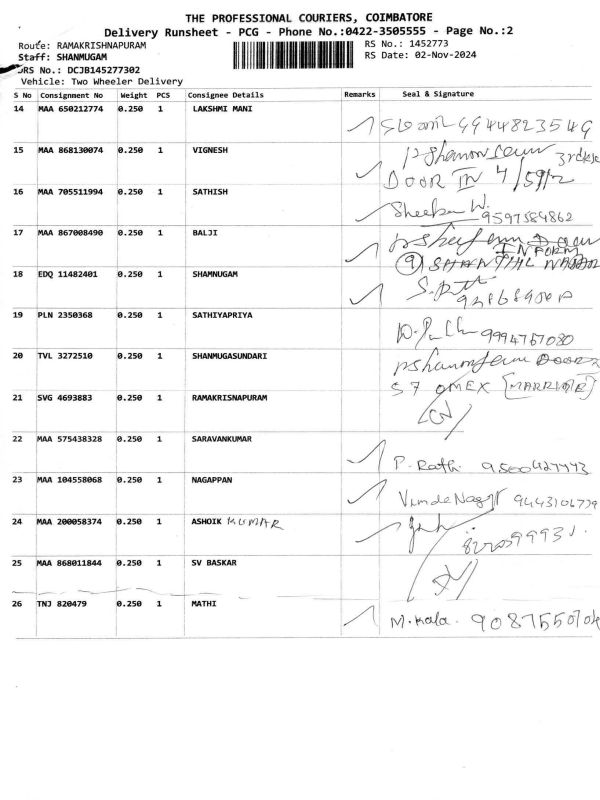 THE PROFESSIONAL COURIERS, COIMBATORE
Delivery Runsheet - PCG - Phone No.:0422-3505555 - Page No.:2
Route: RAMAKRISHNAPURAM
RS No.: 1452773
Staff: SHANMUGAM
RS Date: 02-Nov-2024
DRS No.: DCJB145277302
Vehicle: Two Wheeler Delivery
S No Consignment No Weight PCS Consignee Details Remarks Seal & Signature
14 MAA 650212774 0.250 1 LAKSHMI MANI 9944823549
15 MAA 868130074 0.250 1 VIGNESH
DOOR IN 4/59/2
16 MAA 705511994 0.250 1 SATHISH
9597584862
17 MAA 867008490 0.250 1 BALJI
INFORM
18 EDQ 11482401 0.250 1 SHAMNUGAM
19 PLN 2350368 0.250 1 SATHIYAPRIYA
9994767080
20 TVL 3272510 0.250 1 SHANMUGASUNDARI
57 OMEX
21 SVG 4693883 0.250 1 RAMAKRISNAPURAM
22 MAA 575438328 0.250 1 SARAVANKUMAR
P. Rathi
23 MAA 104558068 0.250 1 NAGAPPAN
24 MAA 200058374 0.250 1 ASHOIK KUMAR
25 MAA 868011844 0.250 1 SV BASKAR
26 TNJ 820479 0.250 1 MATHI
M. Kala.